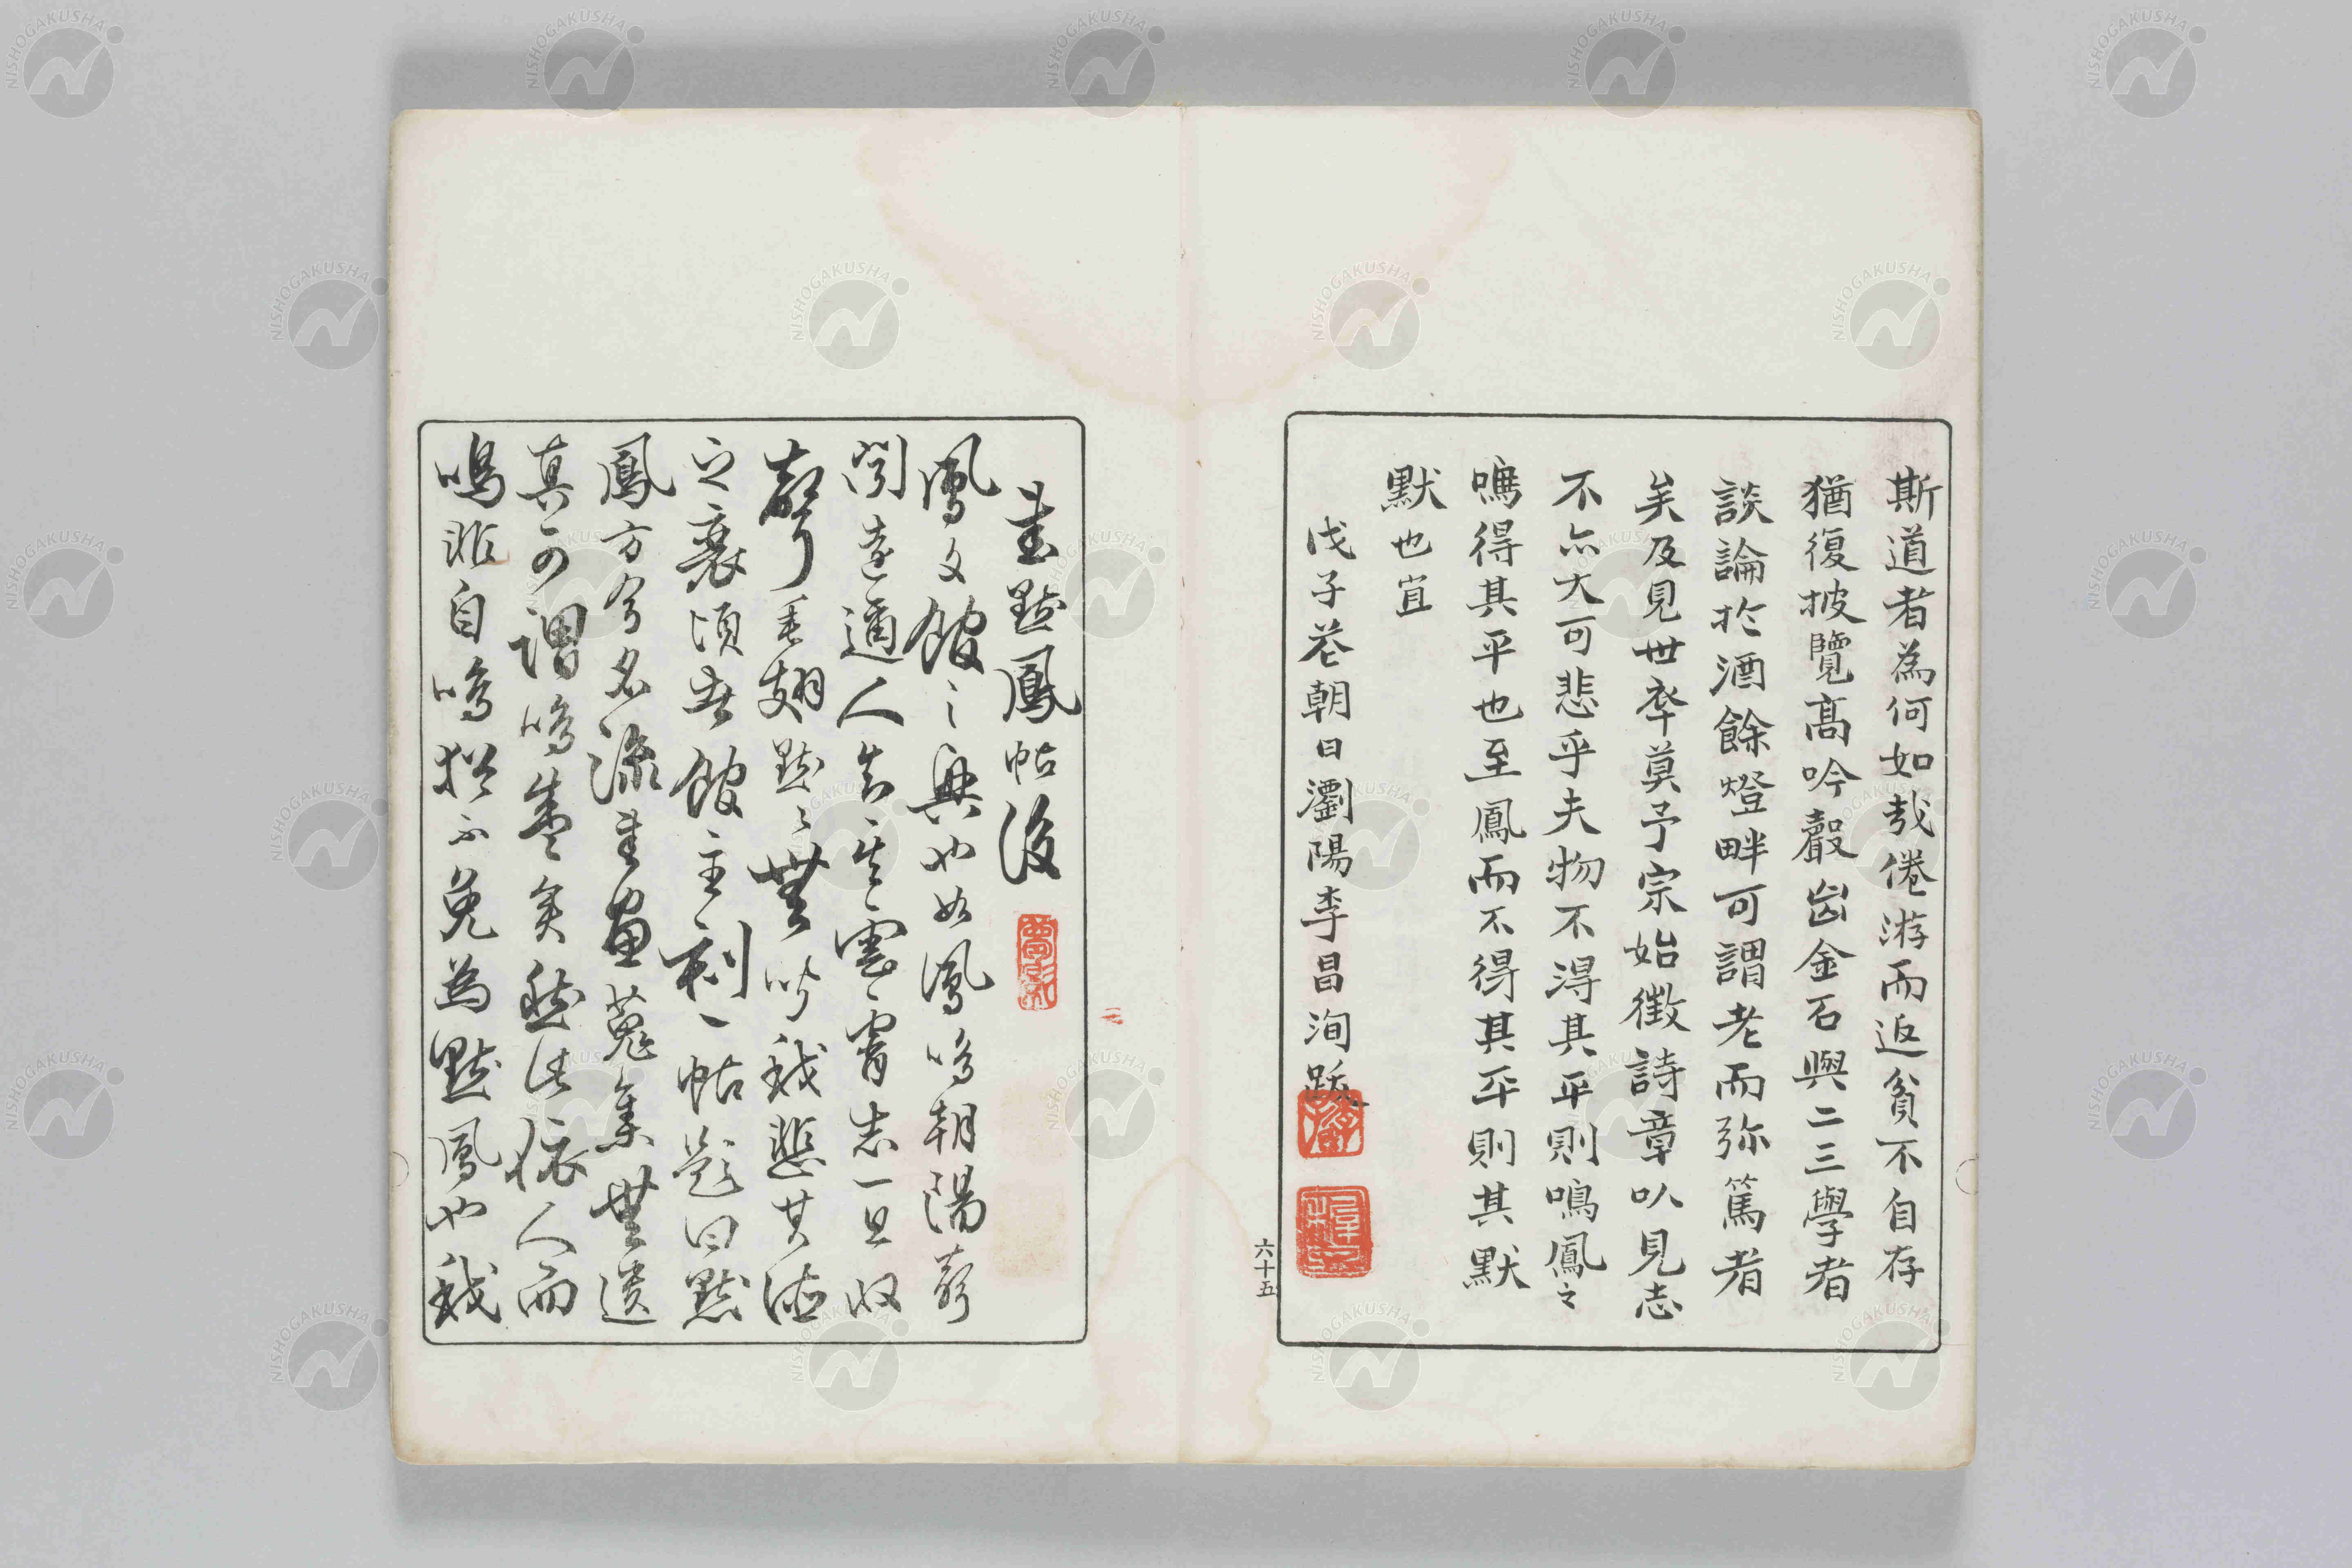 斯道者為何如哉倦游而返貧不自存
猶復披覽高吟聲出金石與二三學者
談論於酒餘燈畔可謂老而弥篤者
矣及見世卒莫予宗始徵詩章以見志
不亦大可悲乎夫物不得其平則鳴鳳之
鳴得其平也至鳳而不得其平則其默
默也宜
戊子花朝日瀏陽李昌洵跋
六十五
書默鳳帖後
鳳文館之興也如鳳鳴朝陽声
聞遠邇人知其雲霄志一旦收
聲垂翅默々無聞我悲其德
之衰頃者館主刻一帖題曰默
鳳方今名流書画蒐集無遺
真可謂鳴盛矣然借依人而
鳴非自鳴猶不免為默鳳也我
NISHOGAKUSHA